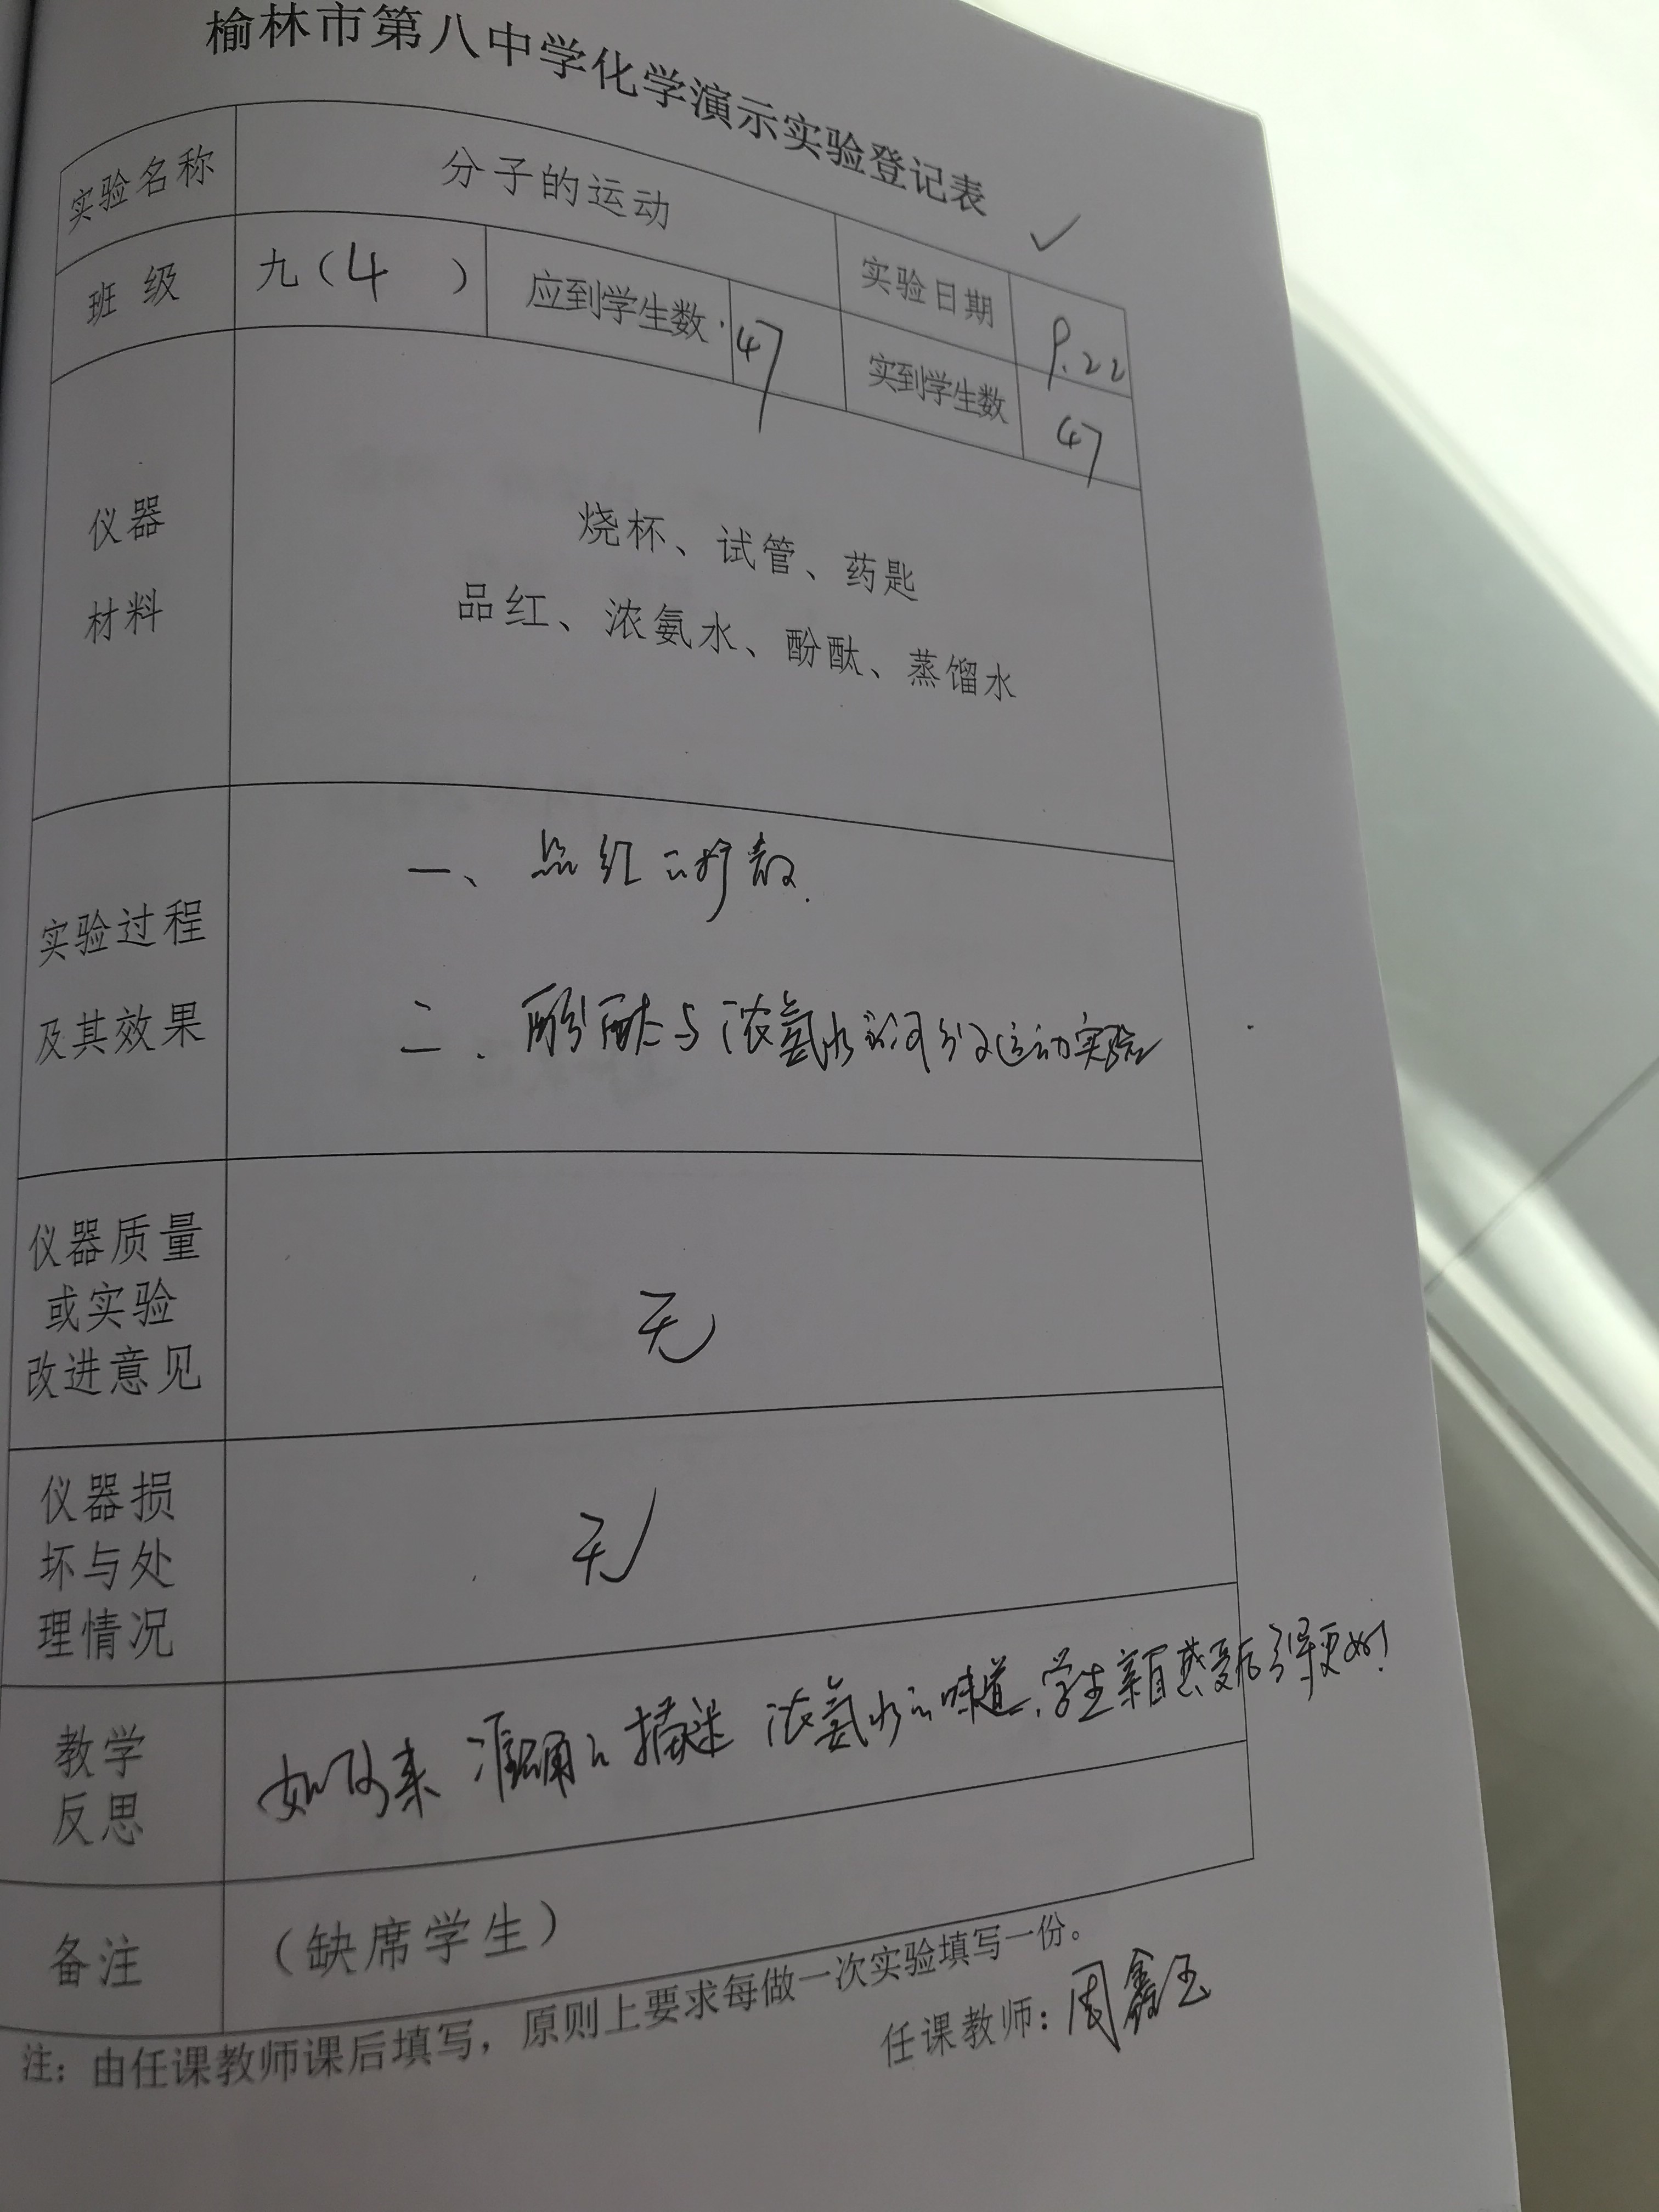 榆林市第八中学化学演示实验登记表
实验名称 分子的运动 实验日期 9.22
班 级 九（4 ） 应到学生数 47 实到学生数 47
仪器
材料
烧杯、试管、药匙
品红、浓氨水、酚酞、蒸馏水
实验过程
及其效果
一、品红的扩散.
二.酚酞与浓氨水之间分子运动实验
仪器质量
或实验
改进意见
无
仪器损
坏与处
理情况
无
教学
反思
如何来准确的描述浓氨水的味道,学生亲自感受后
备注 （缺席学生）
注：由任课教师课后填写，原则上要求每做一次实验填写一份。
任课教师：周鑫玉